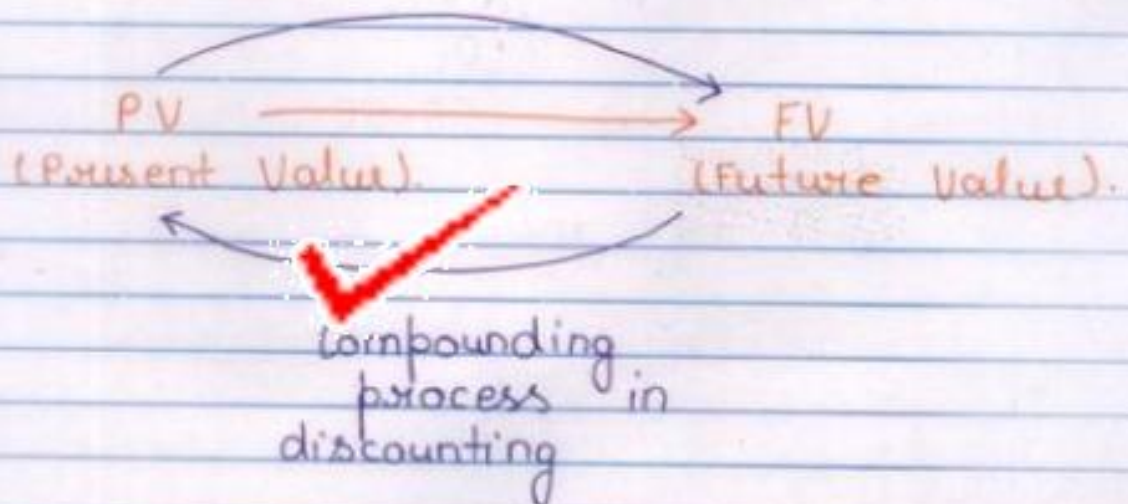 PV FV
(Present Value). (Future Value).
Compounding
process in
discounting